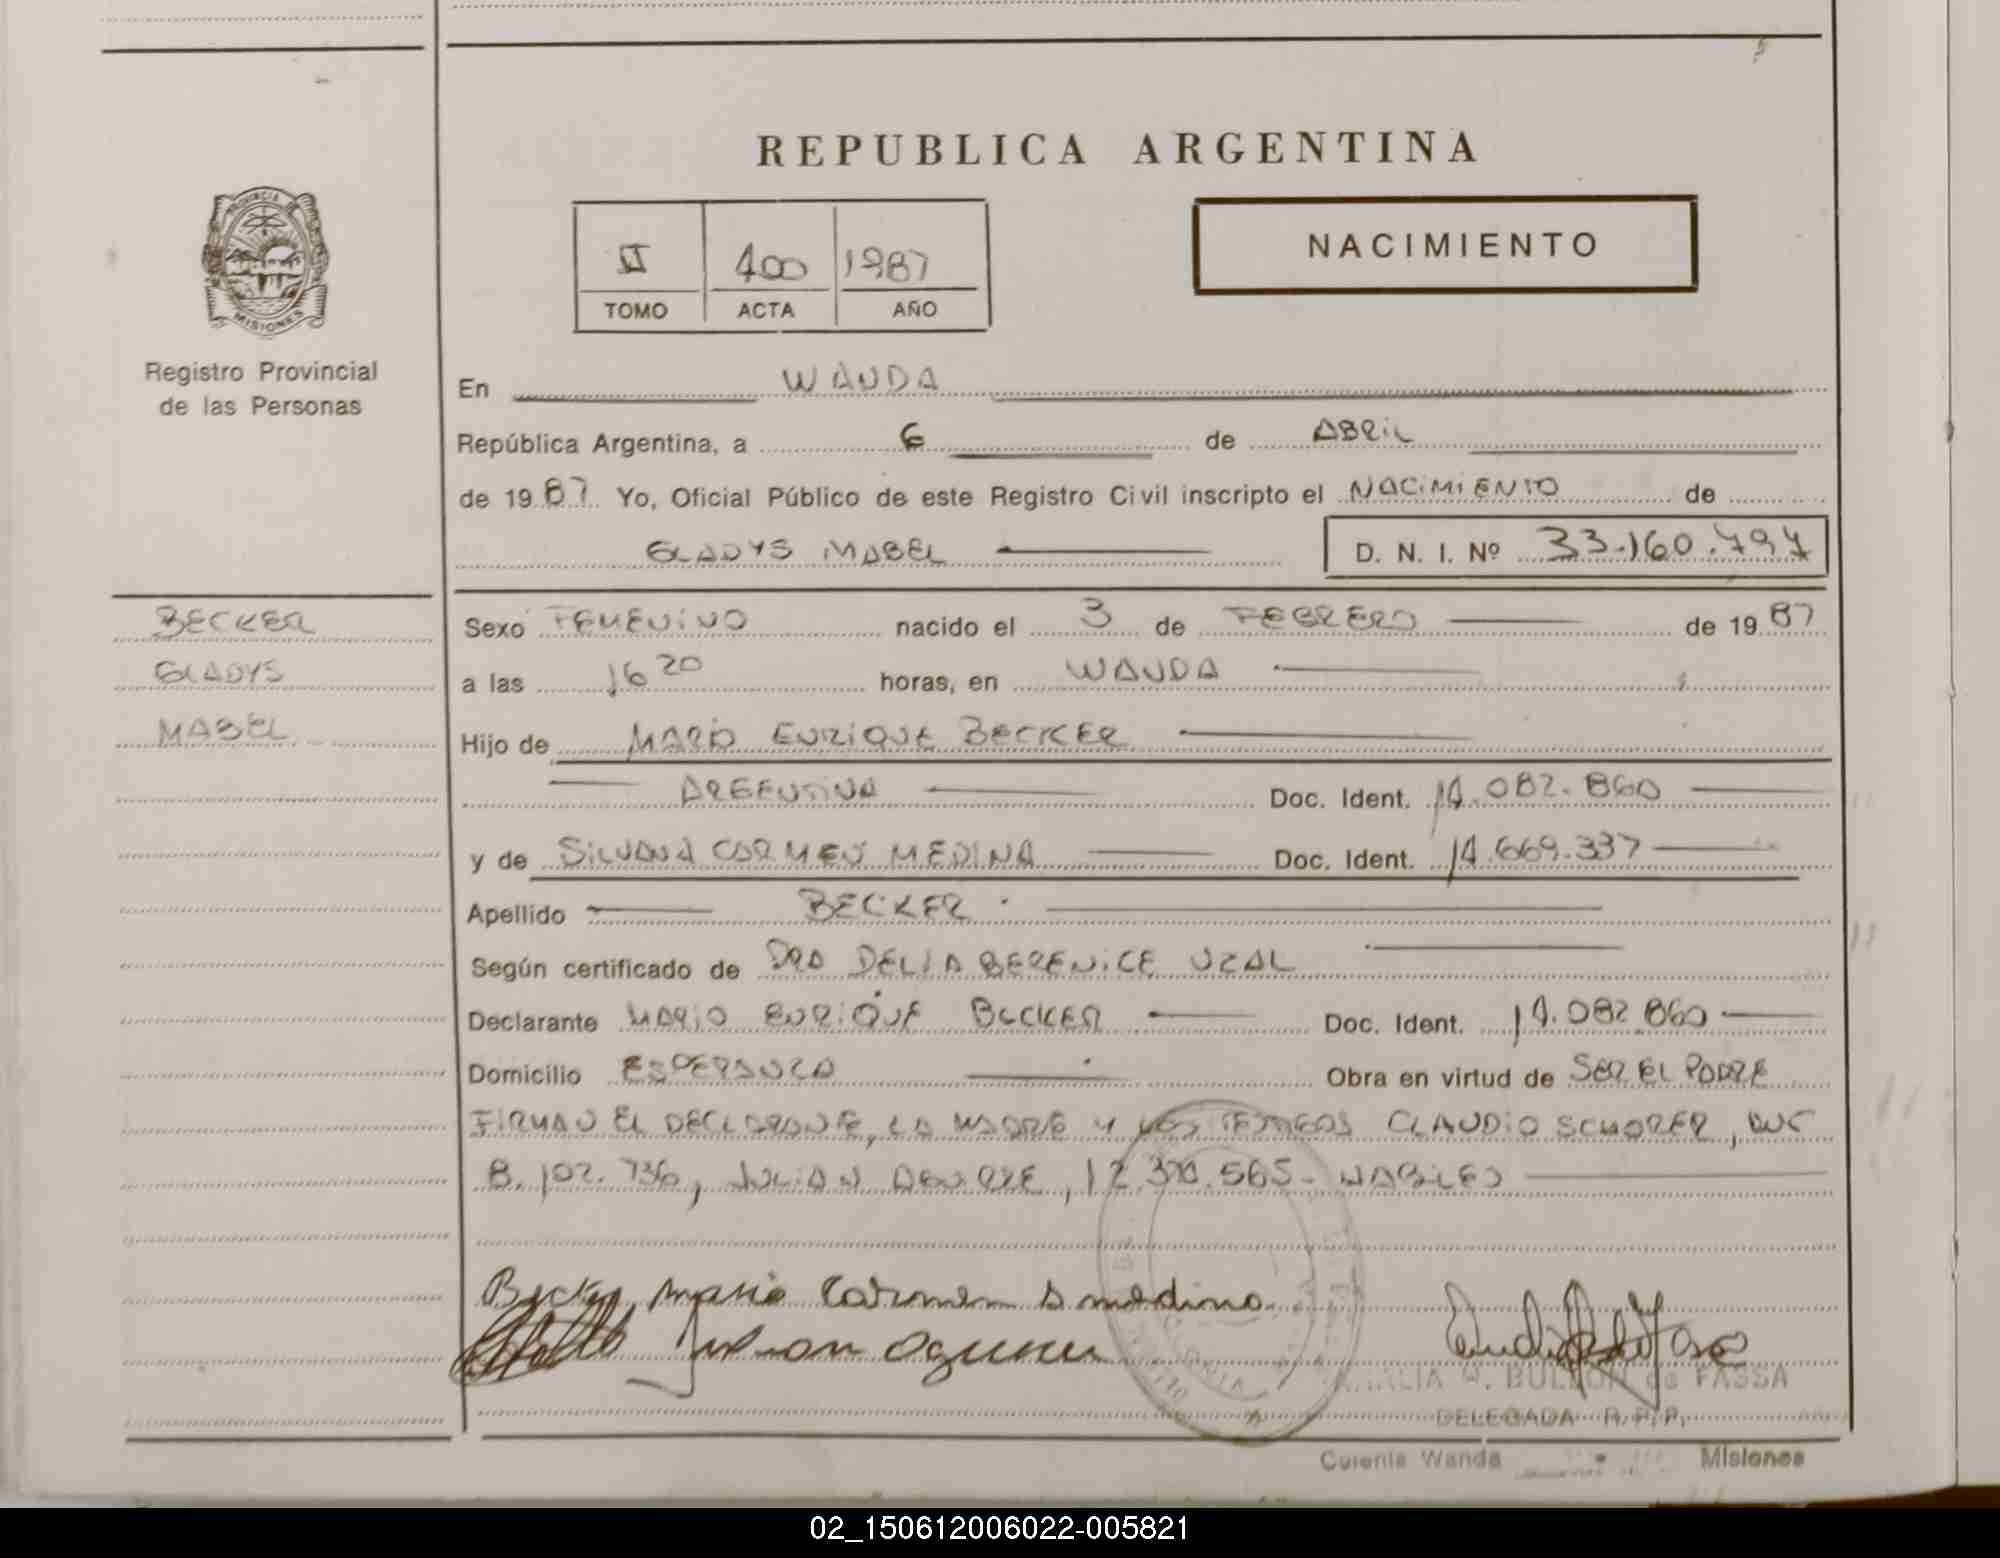 REPUBLICA ARGENTINA
PROVINCIA DE
MISIONES
Registro Provincial
de las Personas
II 400 1987
TOMO ACTA AÑO
NACIMIENTO
En WANDA
República Argentina, a 6 de ABRIL
de 1987. Yo, Oficial Público de este Registro Civil inscripto el NACIMIENTO de
GLADYS MABEL D. N. I. Nº 33.160.797
BECKER
GLADYS
MABEL
Sexo FEMENINO nacido el 3 de FEBRERO de 1987
a las 16 20 horas, en WANDA
Hijo de MARIO ENRIQUE BECKER
ARGENTINA Doc. Ident. 14.082.860
y de SILVANA CARMEN MEDINA Doc. Ident. 14.669.337
Apellido BECKER
Según certificado de DRA DELIA BERENICE UZAL
Declarante MARIO ENRIQUE BECKER Doc. Ident. 14.082.860
Domicilio ESPERANZA Obra en virtud de SER EL PADRE
FIRMAN EL DECLARANTE, LA MADRE Y LOS TESTIGOS CLAUDIO SCHORER, DNI
8.102.736, JULIAN AGUIRRE, 12.370.565- HABILES
Becker Mario Carmen S medina
Julian Aguirre
BULLON de FASSA
DELEGADA R. P. P.
Colonia Wanda Misiones
02_150612006022-005821